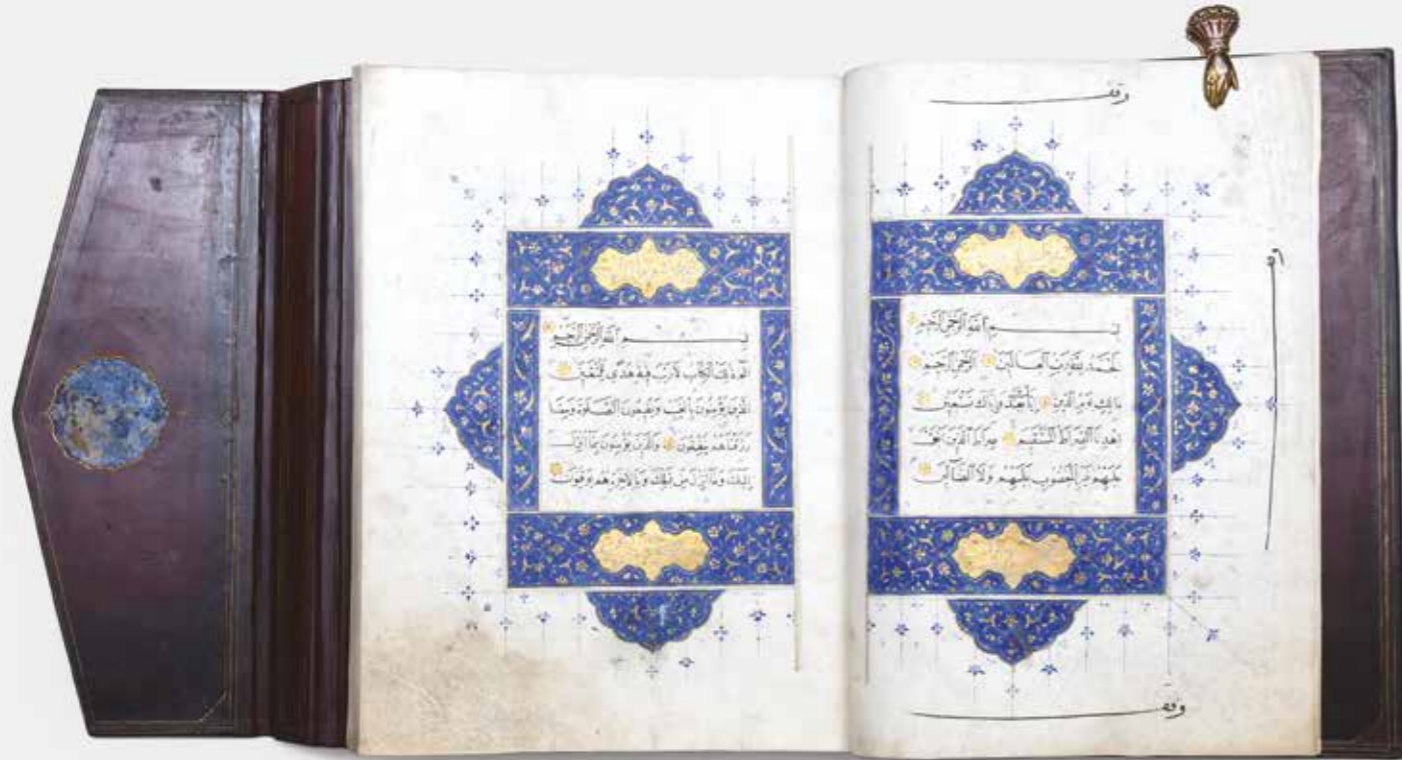 وقف
بسم الله الرحمن الرحيم
الحمد لله رب العالمين الرحمن الرحيم
مالك يوم الدين إياك نعبد وإياك نستعين
اهدنا الصراط المستقيم صراط الذين أنعمت
عليهم غير المغضوب عليهم ولا الضالين
وقف
بسم الله الرحمن الرحيم
الم ذلك الكتاب لا ريب فيه هدى للمتقين
الذين يؤمنون بالغيب ويقيمون الصلوة ومما
رزقناهم ينفقون والذين يؤمنون بما أنزل
إليك وما أنزل من قبلك وبالآخرة هم يوقنون